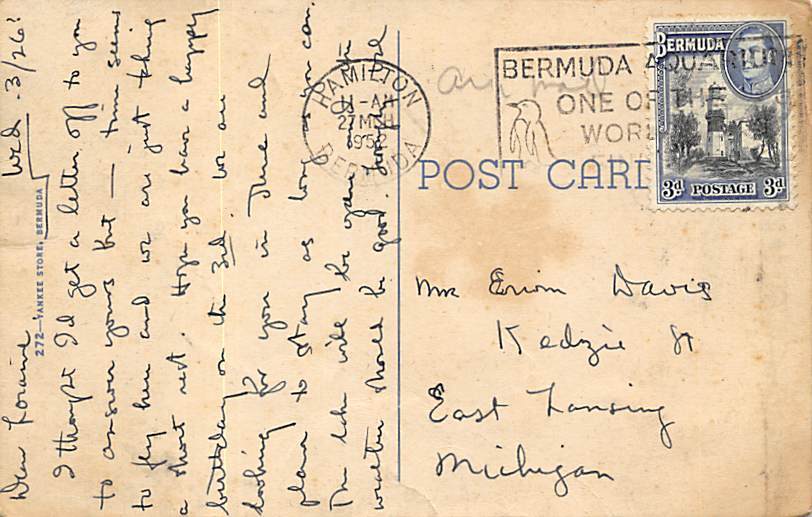 Wed. 3/26
Dear Loraine
I thought I'd get a letter off to you
to answer yours but — time seems
to fly here and we are just taking
a short rest. Hope you have a happy
birthday on the 3rd. We are
looking for you in June and
plan to stay as long as you can.
The lake will be open and the
weather should be good. Love
272—YANKEE STORE, BERMUDA
HAMILTON
11-AM
27 MCH
195
BERMUDA
air mail
BERMUDA AQUARIUM
ONE OF THE
WORL
BERMUDA
3d POSTAGE 3d
POST CARD
Mrs Erwin Davis
Kedzie St
East Lansing
Michigan